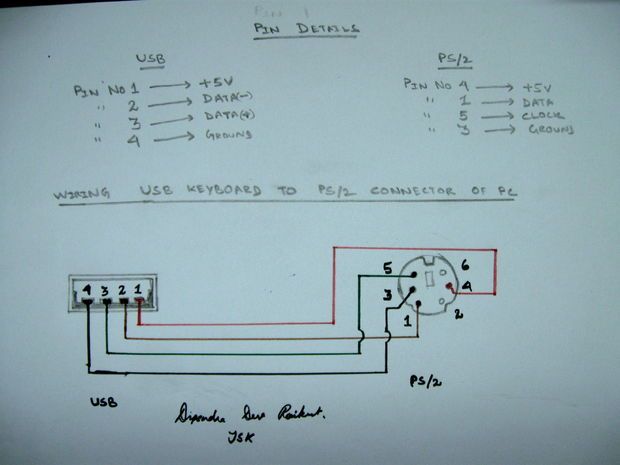 PIN 1
PIN DETAILS
USB
PIN NO 1 → +5V
" 2 → DATA(-)
" 3 → DATA(+)
" 4 → GROUND
PS/2
PIN NO 4 → +5V
" 1 → DATA
" 5 → CLOCK
" 3 → GROUND
WIRING USB KEYBOARD TO PS/2 CONNECTOR OF PC
4 3 2 1
5
6
3
4
1
2
USB
PS/2
JSK